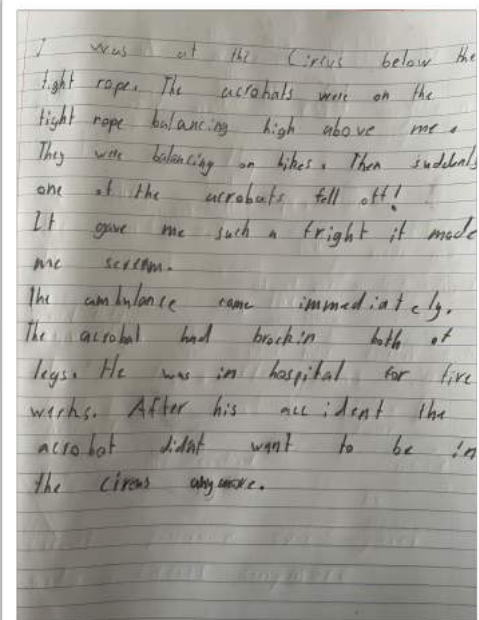 I was at the Circus below the
tight rope. The acrobats were on the
tight rope balancing high above me.
They were balancing on bikes. Then suddenly
one of the acrobats fell off!
It gave me such a fright it made
me scream.
The ambulance came immediately.
The acrobat had brockin both of
legs. He was in hospital for five
weeks. After his accident the
acrobat didnt want to be in
the circus anymore.